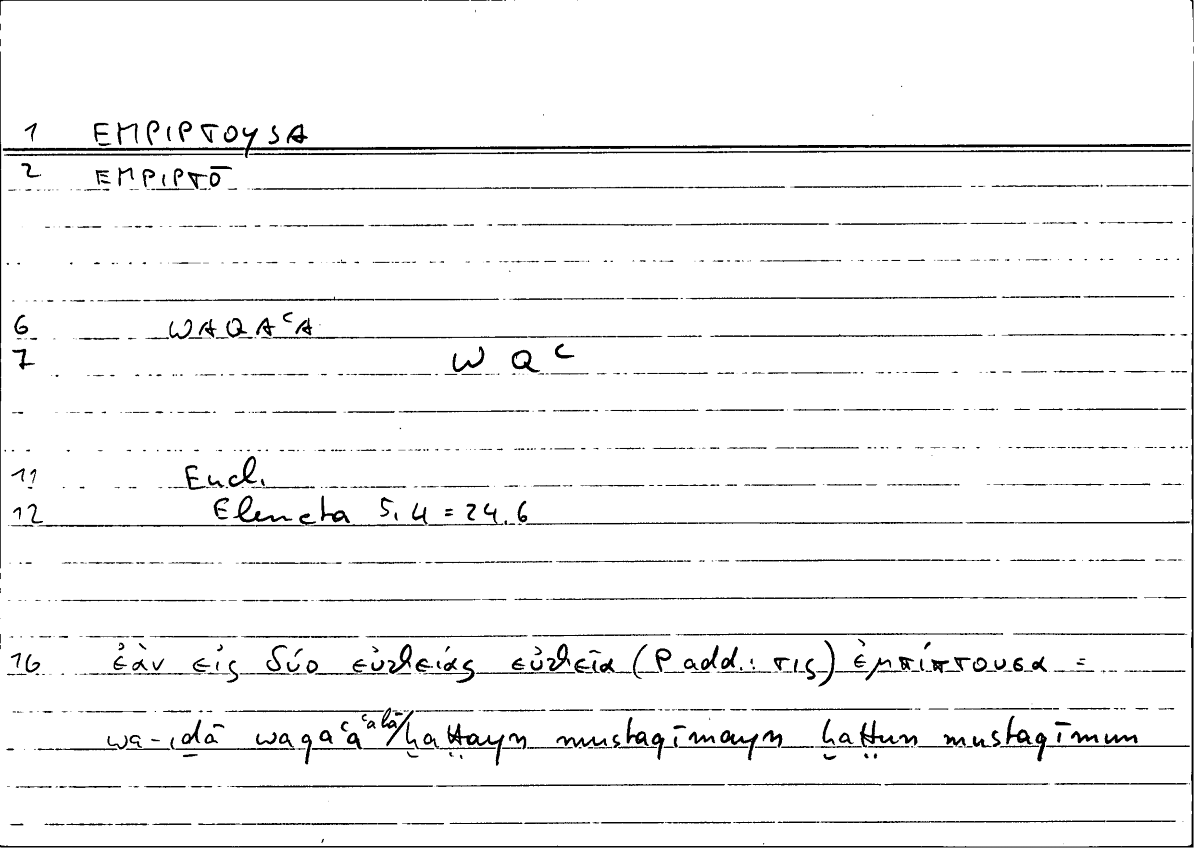 1 EMPIPTOYSA
2 EMPIPTŌ
6 WAQAʿA
7 W Q ʿ
11 Eucl.
12 Elementa 5,4 = 24,6
16 ἐὰν εἰς δύο εὐθείας εὐθεῖα (P add.: τις) ἐμπίπτουσα =
wa-iḏā waqaʿa ʿalā/ḫaṭṭayn mustaqīmayn ḫaṭṭun mustaqīmun